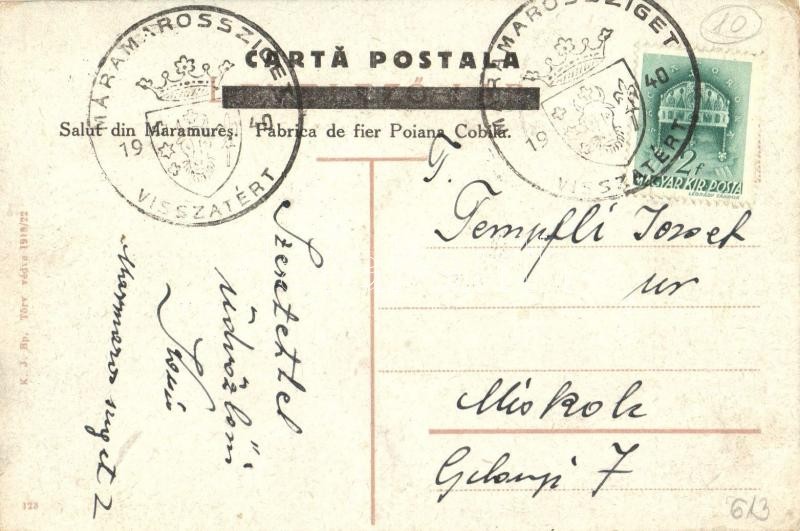 MÁRAMAROSSZIGET
1940
VISSZATÉRT
MÁRAMAROSSZIGET
1940
VISSZATÉRT
10
CARTĂ POSTALA
Salut din Maramureş. Fabrica de fier Poiana Cobila.
2f
MAGYAR KIR. POSTA
LÉGRÁDY SÁNDOR
T.
Templli Iozsef
ur
Miskolc
7
Szeretettel
üdvözlöm
2
K. J. Bp. Törv. védve 1918/22
123
613